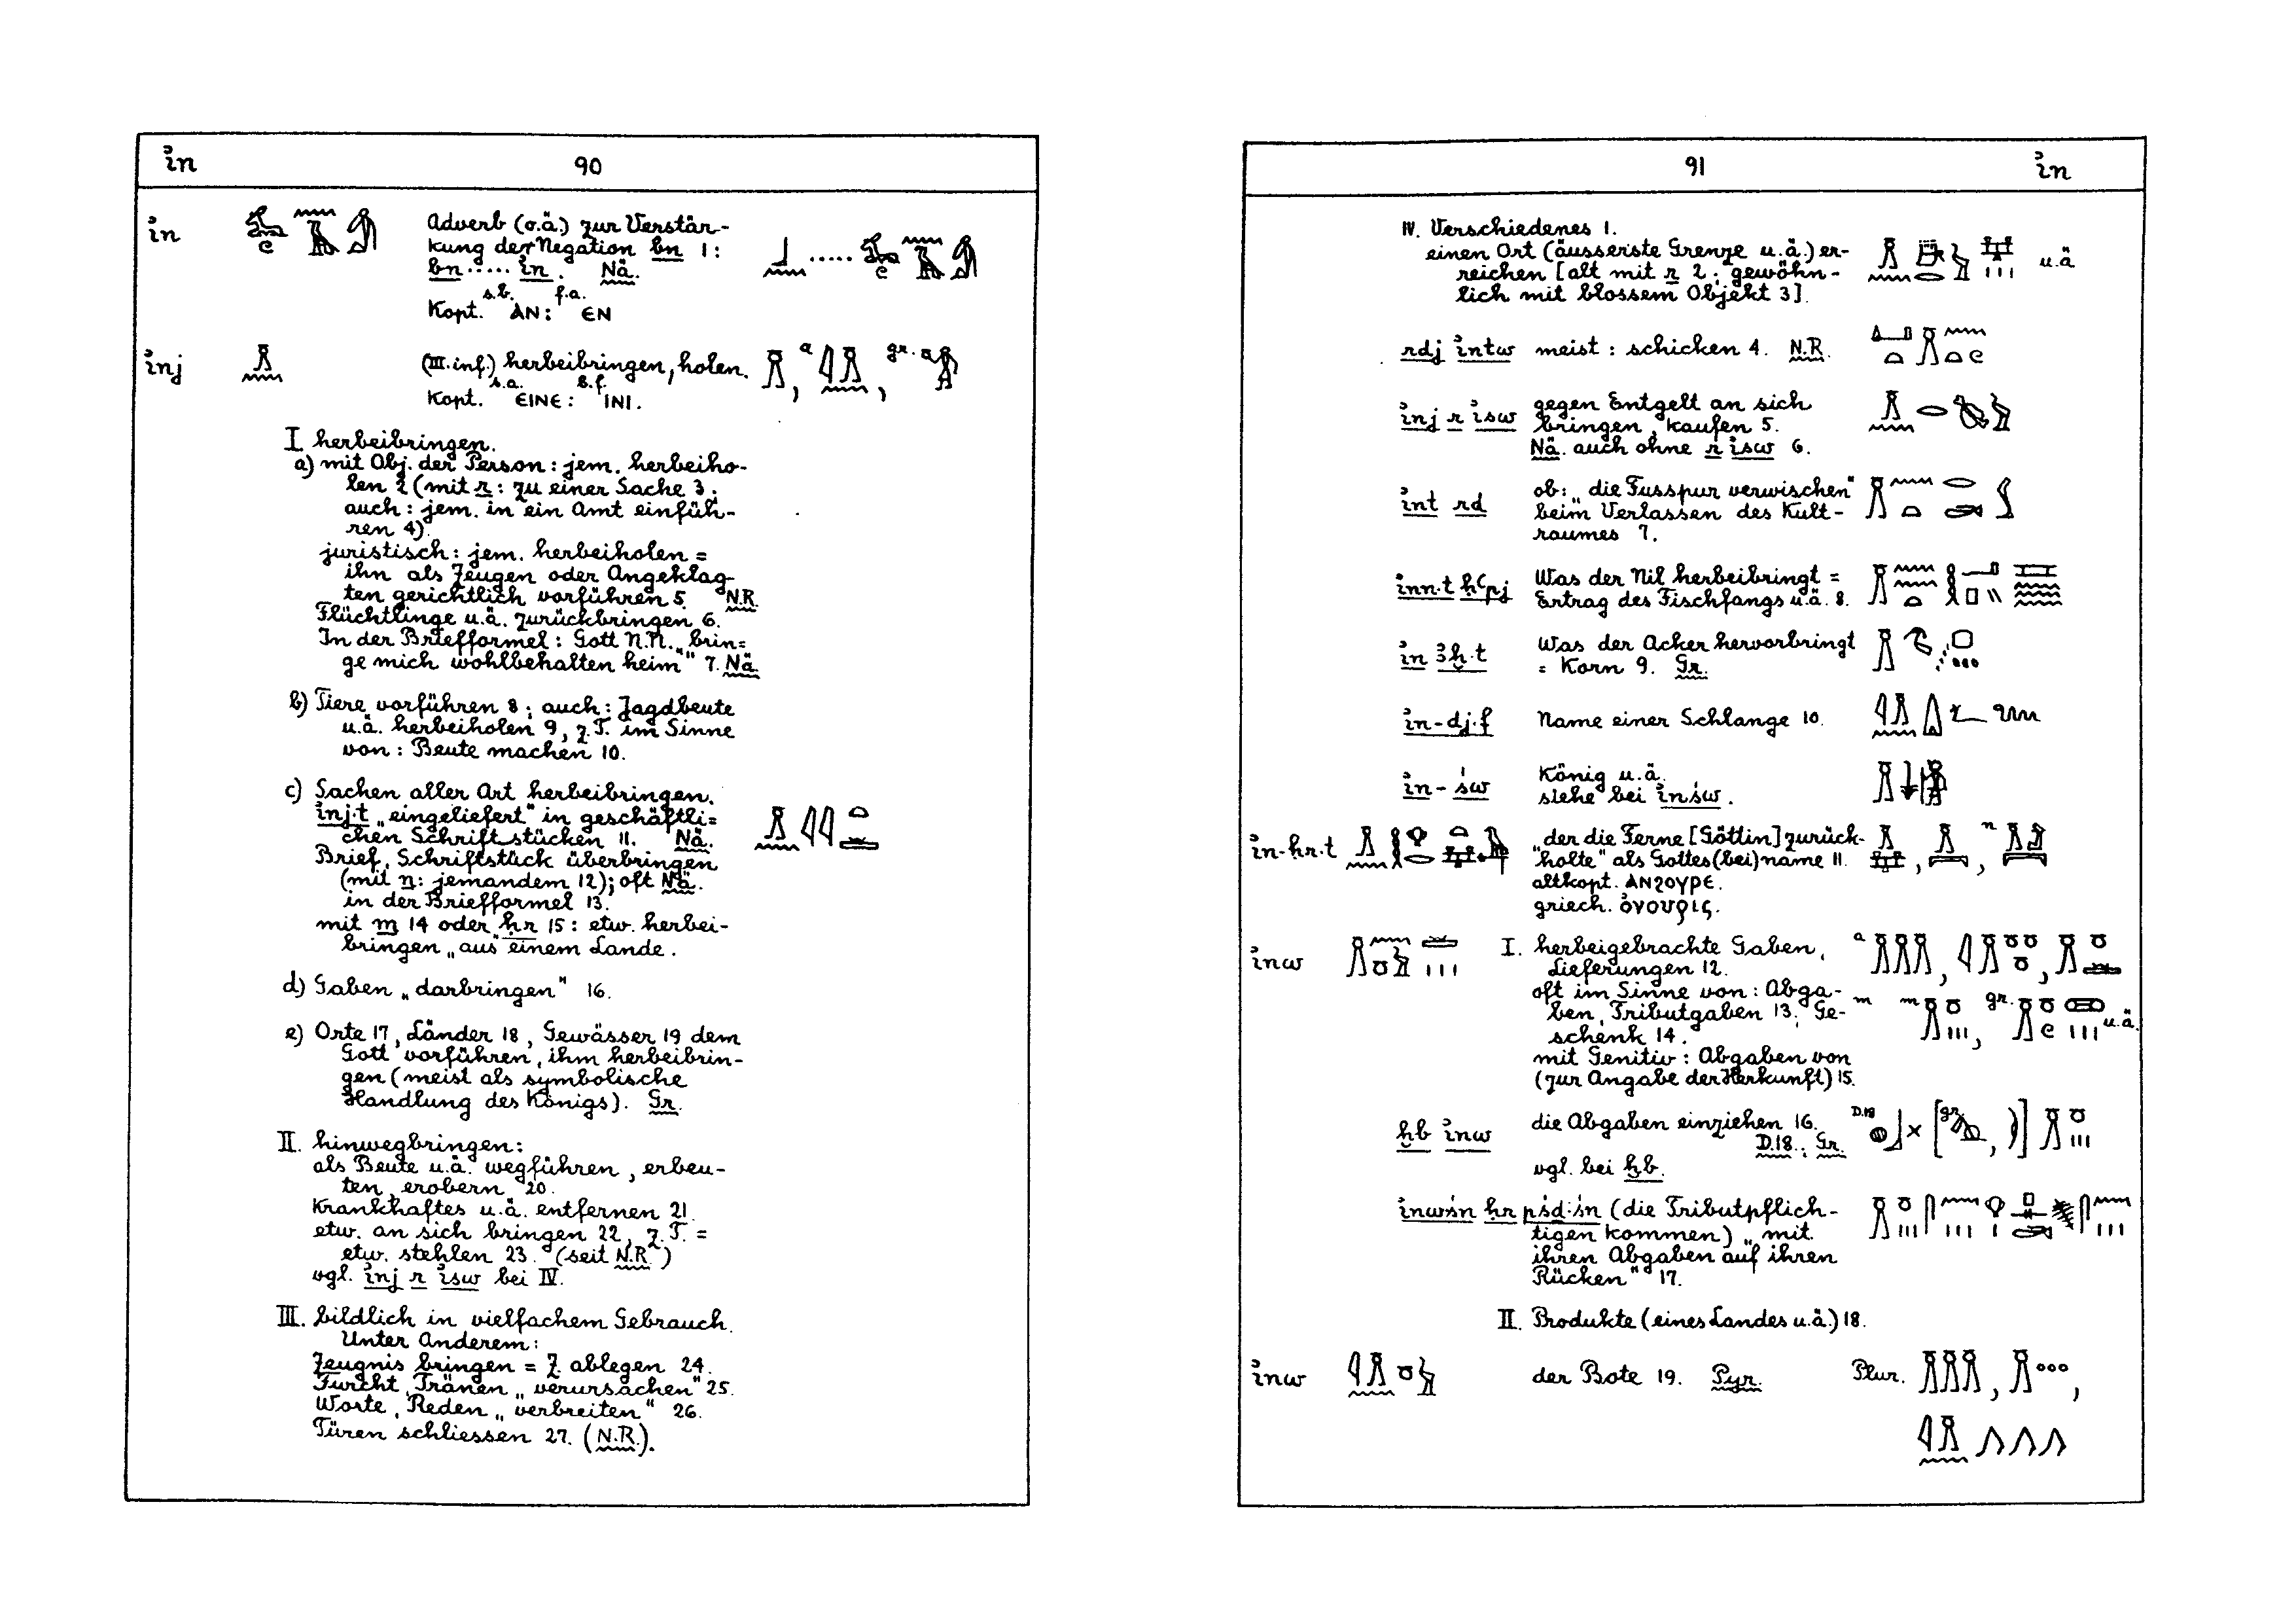 in 90
in Adverb (o.ä.) zur Verstär-
kung der Negation bn 1:
bn ..... in. Nä.
s.b. f.a.
Kopt. ⲀⲚ: ⲈⲚ
inj (III. inf.) herbeibringen, holen. a gr.
s.a. b.f.
Kopt. ⲈⲒⲚⲈ: ⲒⲚⲒ.
I. herbeibringen.
a) mit Obj. der Person: jem. herbeiho-
len 2 (mit r: zu einer Sache 3;
auch: jem. in ein Amt einfüh-
ren 4).
juristisch: jem. herbeiholen =
ihn als Zeugen oder Angeklag-
ten gerichtlich vorführen 5. N.R.
Flüchtlinge u.ä. zurückbringen 6.
In der Briefformel: Gott N.N. „brin=
ge mich wohlbehalten heim" 7. Nä.
b) Tiere vorführen 8; auch: Jagdbeute
u.ä. herbeiholen 9, z.T. im Sinne
von: Beute machen 10.
c) Sachen aller Art herbeibringen.
inj.t „eingeliefert" in geschäftli=
chen Schriftstücken 11. Nä.
Brief, Schriftstück überbringen
(mit n: jemandem 12); oft Nä.
in der Briefformel 13.
mit m 14 oder ḥr 15: etw. herbei-
bringen „aus" einem Lande.
d) Gaben „darbringen" 16.
e) Orte 17, Länder 18, Gewässer 19 dem
Gott vorführen, ihm herbeibrin-
gen (meist als symbolische
Handlung des Königs). Gr.
II. hinwegbringen:
als Beute u.ä. wegführen, erbeu-
ten, erobern 20.
Krankhaftes u.ä. entfernen 21.
etw. an sich bringen 22, z.T. =
etw. stehlen 23. (seit N.R.)
vgl. inj r isw bei IV.
III. bildlich in vielfachem Gebrauch.
Unter Anderem:
Zeugnis bringen = Z. ablegen 24.
Furcht, Tränen „verursachen" 25.
Worte, Reden „verbreiten" 26.
Türen schliessen 27. (N.R.).
91 in
IV. Verschiedenes 1.
einen Ort (äusserste Grenze u.ä.) er- u.ä
reichen [alt mit r 2; gewöhn-
lich mit blossem Objekt 3].
rdj intw meist: schicken 4. N.R.
inj r isw gegen Entgelt an sich
bringen, kaufen 5.
Nä. auch ohne r isw 6.
int rd ob: „die Fusspur verwischen"
beim Verlassen des Kult-
raumes 7.
inn.t ḥꜥpj Was der Nil herbeibringt =
Ertrag des Fischfangs u.ä. 8.
in ꜣḫ.t Was der Acker hervorbringt
= Korn 9. Gr.
in-dj.f Name einer Schlange 10.
in-św König u.ä.
siehe bei inśw.
in-ḥr.t „der die Ferne [Göttin] zurück- n
holte" als Gottes(bei)name 11.
altkopt. ⲀⲚϨⲞⲨⲢⲈ.
griech. ὀνουρις.
inw I. herbeigebrachte Gaben, a
Lieferungen 12.
oft im Sinne von: Abga- m m gr.
ben, Tributgaben 13; Ge- u.ä.
schenk 14.
mit Genitiv: Abgaben von
(zur Angabe der Herkunft) 15.
ḫb inw die Abgaben einziehen 16. D.18 gr.
D.18.; Gr.
vgl. bei ḫb.
inw.śn ḥr pśd.śn (die Tributpflich-
tigen kommen) „mit
ihren Abgaben auf ihren
Rücken" 17.
II. Produkte (eines Landes u.ä.) 18.
inw der Bote 19. Pyr. Plur.